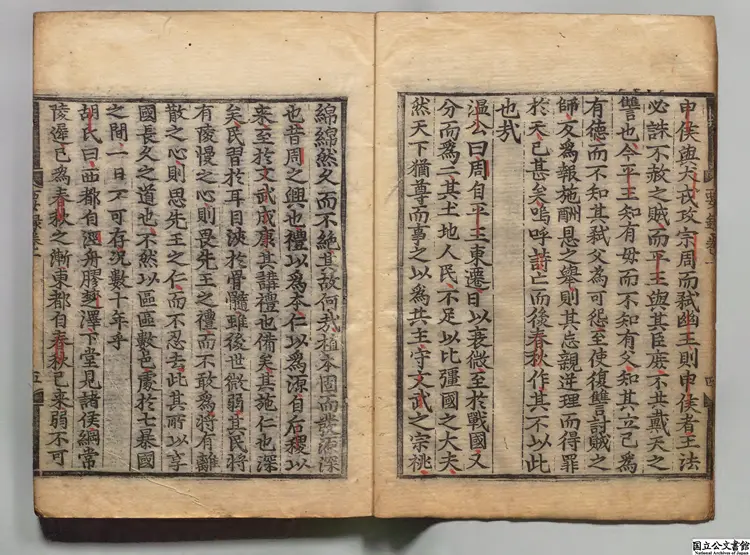 申侯與犬戎攻宗周而弑幽王則申侯者王法
必誅不赦之賊而平王與其臣庶不共戴天之
讐也今平王知有母而不知有父知其立己爲
有德而不知其弑父爲可怨至使復讐討賊之
師友爲報施酬恩之擧則其忘親逆理而得罪
於天已甚矣嗚呼詩亡而後春秋作其不以此
也㢤
温公曰周自平王東遷日以衰微至於戰國又
分而爲二其土地人民不足以比彊國之大夫
然天下猶尊而事之以爲共主守文武之宗祧
四
綿綿然久而不絶其故何㢤植本固而發源深
也昔周之興也禮以爲本仁以爲源自后稷以
來至於文武成康其講禮也備矣其施仁也深
矣民習於耳目浹於骨髓雖後世微弱其民將
有陵慢之心則畏先王之禮而不敢爲將有離
散之心則思先王之仁而不忍去此其所以享
國長久之道也不然以區區數邑處於七暴國
之間一日不可存況數十年乎
胡氏曰西都自舟膠楚澤下堂見諸侯綱常
陵遲已爲春秋之漸東都自春秋已來弱不可
五
国立公文書館
National Archives of Japan